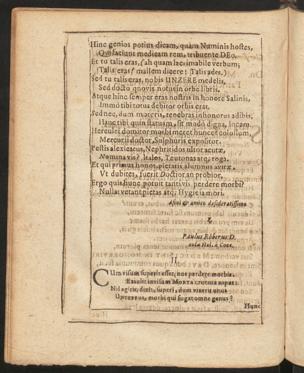 Hinc genios potius dicam, quàm Numinis hostes,
Qui faciunt medicam rem, tribuente DEo.
Et tu talis eras, (ah quam lacrimabile verbum;
(Talis eras? mallem dicere: Talis ades.)
Sed tu talis eras, nobis UNZERE medelis,
Sed docto quovis notus in orbe libris.
Atque hinc semper eras nostris in honore Salinis,
Immò tibi totus debitor orbis erat.
Sed nec, dum materis, tenebras in honorus adibis,
Hanc tibi quin statuam, sit modò digna, locem.
Herculei domitor morbi meret hunc et colossum,
Mercurii doctor, Sulphuris expositor.
Pestis alexiacus, Nephritidos ultor acutæ,
Nomina vis? Italos, Teutonas atq; roga.
Et qui primus honos, pietatis alumnus avitæ
Ut dubites, fuerit Doctior an probior,
Ergo quis hunc potuit tantivis perdere morbi?
Nulla vetant pietas atq; Hygieia mori.
Affini & amico desideratissimo
Paulus Röberus D.
aulæ Hal. à Conc.
II.
CUm visum superis esset, nos perdere morbis,
Nil agitis, dixit, superi, dum vixerit unus
UNZERUS, morbi qui fugat omne genus?
Hunc